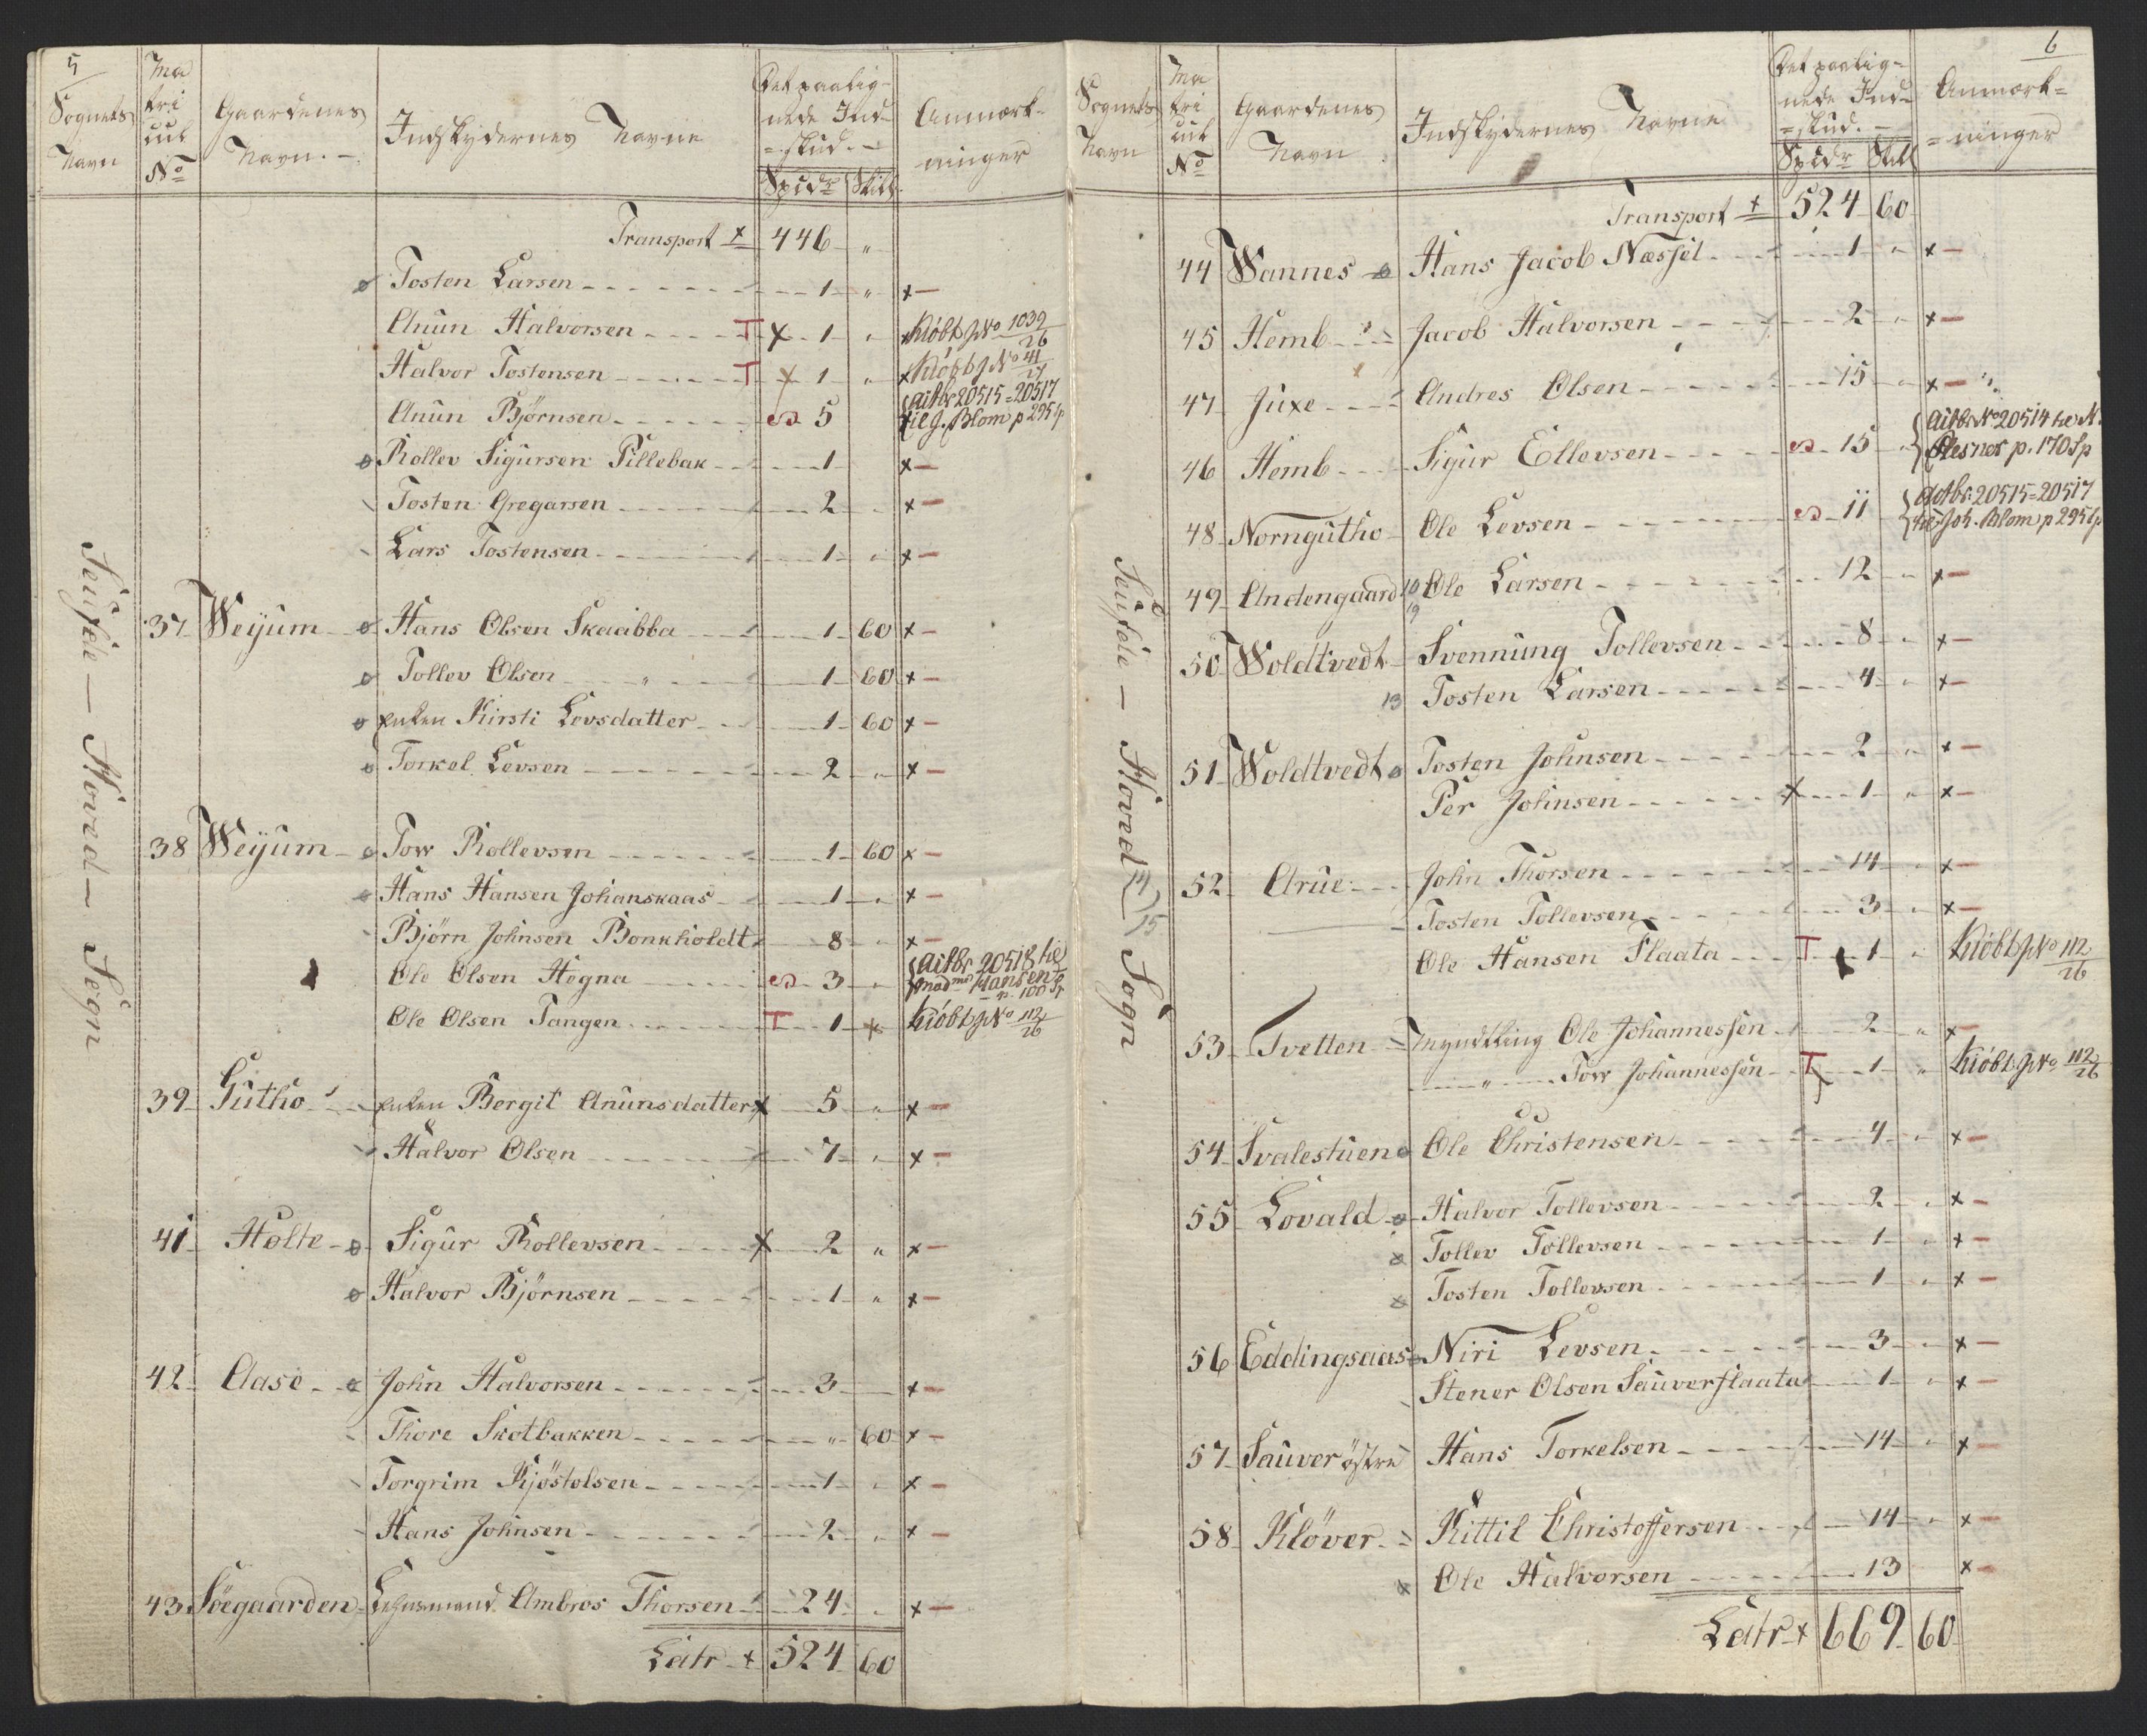 5
Sognets Navn | Matricul No | Gaardenes Navn. | Indskydernes Navne | Det paalignede Indskud. Spcdr Skill. | Anmærkninger
Transport 446 "
Tosten Larsen 1 " x
Anun Halvorsen T x 1 " Kiöbt J No 1039/26
Halvor Tostensen T x 1 " x Kiöbt J No 41/27
Anun Björnsen 5 aitbr 20515=20517 til J. Blom p 295 Sp
Rollev Sigursen Pillebak 1 x
Tosten Gregarsen 2 x
Lars Tostensen 1 " x
37 Weyum Hans Olsen Skaabba 1 60 x
Tollev Olsen " 1 60 x
Enken Kirsti Levsdatter 1 60 x
Torkel Levsen 2 " x
38 Weyum Tow Rollevsen 1 60 x
Hans Hansen Johanskaas 1 " x
Björn Johnsen Bonkholdt 8 " x
Ole Olsen Hegna 3 " aitbr 20518 til Mad Hansen p. 100 Sp
Ole Olsen Tangen T 1 x Kiöbt J No 112/26
39 Gutho Enken Bergit Anunsdatter x 5 " x
Halvor Olsen 7 " x
41 Holte Sigur Rollevsen x 2 " x
Halvor Björnsen 1 " x
42 Aase John Halvorsen 3 x
Thore Skotbakken " 60 x
Torgrim Kjöstolsen 1 " x
Hans Johnsen 2 " x
43 Söegaarden Lehnsmand Ambros Thorsen 24 " x
Latr 524 60
Seufde — Hoved — Sogn
6
Sognets Navn | Matricul No | Gaardenes Navn | Indskydernes Navne | Det paalignede Indskud. Spcdr Skill | Anmærkninger
Transport 524 60
44 Wannes Hans Jacob Næssel 1 " x
45 Hemb Jacob Halvorsen 2 " x
47 Juxe Andres Olsen 15 " x
46 Hemb Sigur Ellevsen 15 " aitbr No 20514 til N. p. 170 Sp
48 Norngutho Ole Levsen 11 aitbr 20515=20517 til Joh. Blom p 295 Sp
49 Andengaard 10 19 Ole Larsen 12 " x
50 Woldtvedt Svennung Tollevsen 8 " x
13 Tosten Larsen 4 " x
51 Woldtvedt Tosten Johnsen 2 " x
Per Johnsen x 1 " x
52 Arue John Thorsen 14 " x
Tosten Tollevsen 3 " x
Ole Hansen Flaata T 1 " Kiöbt J No 112/26
53 Tvetten Myndtling Ole Johannessen 2 " x
" Tow Johannessen T 1 " Kiöbt J No 112/26
54 Svalestuen Ole Christensen 4 " x
55 Lovald Halvor Tollevsen 2 " x
Tollev Tollevsen 1 " x
Tosten Tollevsen 1 " x
56 Eddingsaas Niri Levsen 3 " x
Stener Olsen Sauverflaata 1 " x
57 Sauver östre Hans Torkelsen 14 " x
58 Klöver Kittil Christoffersen 14 " x
Ole Halvorsen 13 x
Latr 669 60
Seufde — Hoved 14 15 Sogn